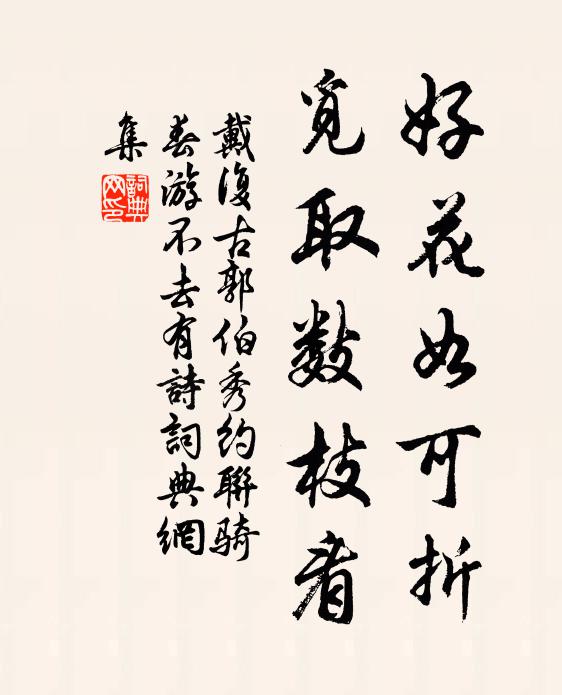 好花如可折
覓取數枝看
戴復古郭伯秀約聯騎
春游不去有詩詞典網
集
詞典
网印